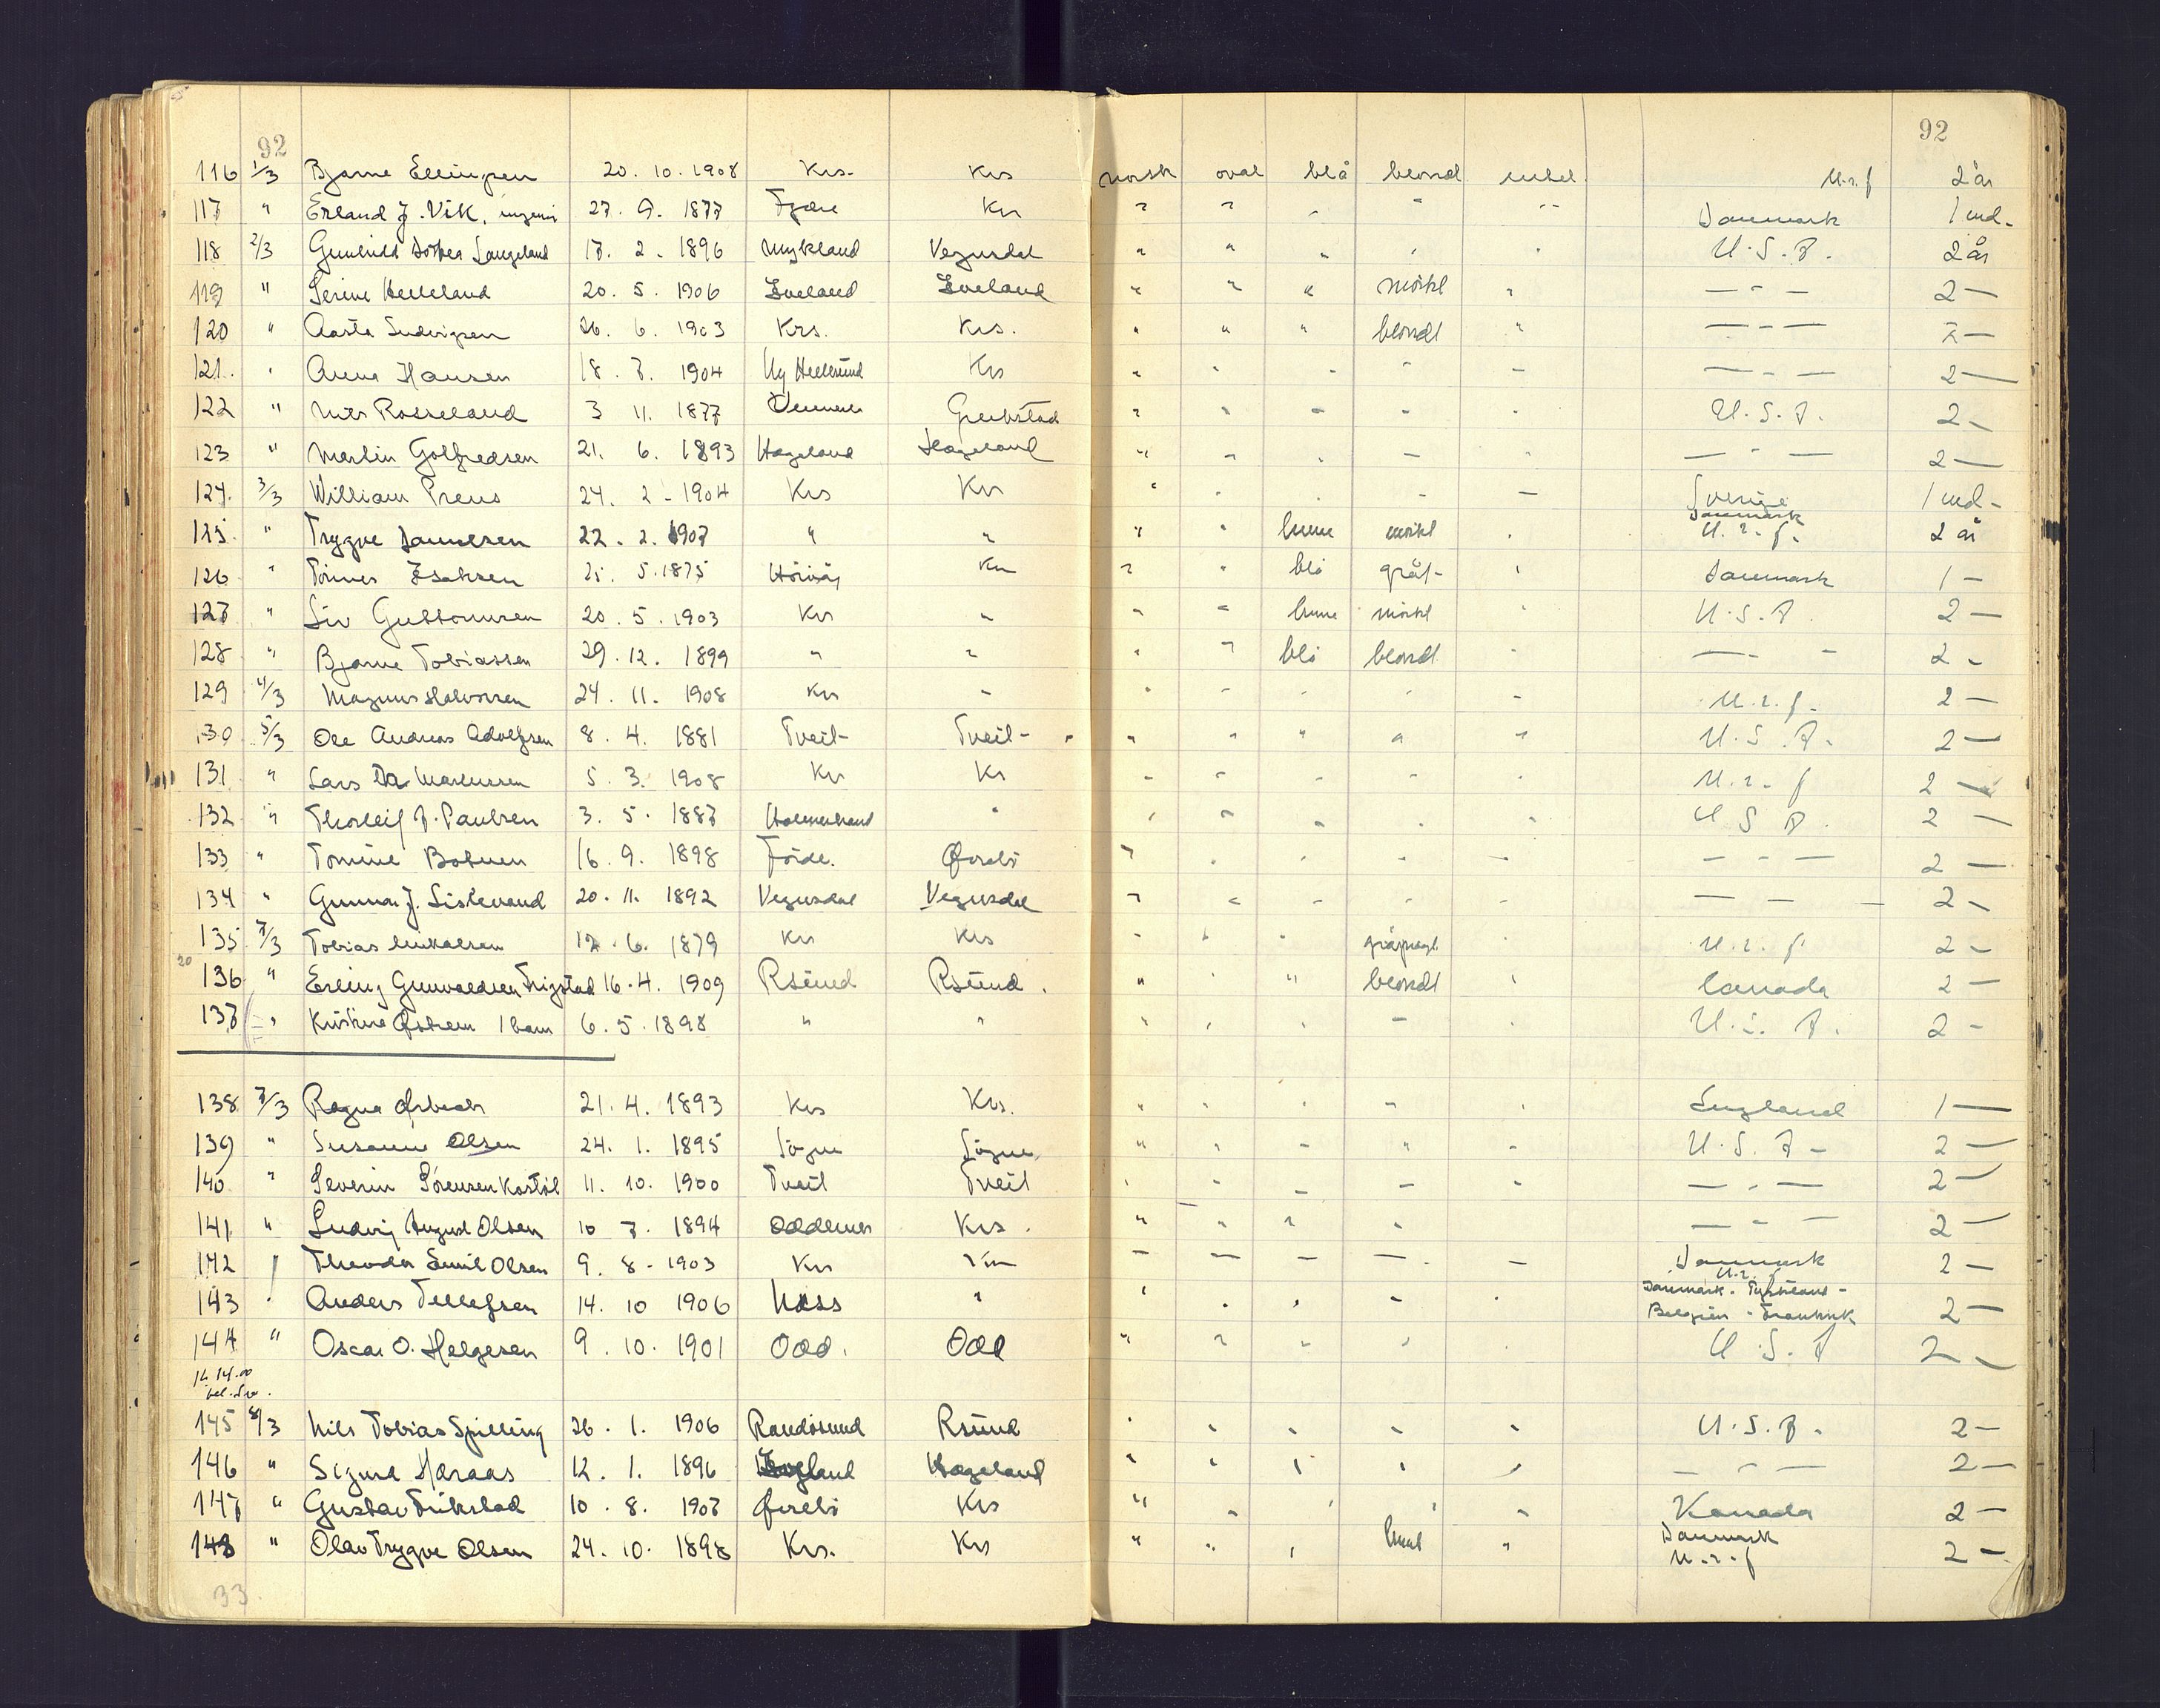 92 92
116 1/3 Bjarne Ellingsen 20. 10. 1908 Krs. Krs norsk oval blå blond enkel. U.r.f 2 år
117 " Erland J. Vik, 27. 9. 1877 Fjære Krs " " " " " Danmark 1 md.
118 2/3 Gunhild Langeland 17. 2. 1896 Mykland Vegusdal " " " " " U.S.A. 2 år
119 " Serine Helleland 20. 5. 1906 Iveland Iveland " " " mörkt " — " — 2 —
120 " Aasta Ludvigsen 26. 6. 1903 Krs. Krs. " " " blondt " — " — 2 —
121. " Anna Hansen 18. 7. 1904 Ny Hellesund Krs " " " " " — " — 2 —
122 " Nils Rosseland 3 11. 1877 Vennesla Greipstad " " " " " U.S.A. 2 —
123 " Martin Golfredsen 21. 6. 1893 Hægeland Hægeland " " " " " — " — 2 —
124. 3/3 William Preus 24. 2 - 1904 Krs Krs " " " " " Sverige Danmark 1 md -
125. " Trygve Danielsen 22. 2. 1907 " " " " brune mörkt " U.r.f. 2 år
126 " Tönnes Isaksen 25. 5. 1875 Hövåg Krs " " blå gråt " Danmark 1 —
127 " Liv Guttormsen 20. 5. 1903 Krs " " " brune mörkt " U.S.A. 2 —
128 " Bjarne Tobiassen 29. 12. 1899 " " " " blå blondt " — " — 2 —
129 4/3 Magnus Halvorsen 24. 11. 1908 Krs " " " " " " U.r.f. 2 —
130 5/3 Ole Andreas Adolfsen 8. 4. 1881 Tveit Tveit " " " " " U.S.A. 2 —
131 " Lars 5. 3. 1908 Krs Krs " " " " " U.r.f 2 —
132 " Thorleif B. Paulsen 3. 5. 1887 Holmestrand " " " " " " U S A. 2 —
133 " Tomine 16. 9. 1898 Förde. Øvrebö " " " " " — " — 2 —
134 " Gunnar J. Lislevand 20. 11. 1892 Vegusdal Vegusdal " " " " " — — — 2 —
135 7/3 Tobias Mikalsen 12. 6. 1879 Krs Krs " " " " U.r.f 2 —
20
136 " Erling Gunvaldsen Trigstad 16. 4. 1909 Rsund Rsund. " " " blondt " Canada 2 —
137 " Kristine 1 barn 6. 5. 1898 " " " " " " " U.S.A. 2 -
138 7/3 Ragna 21. 4. 1893 Krs Krs. " " " " " England 1 —
139 " Susanne Olsen 24. 1. 1895 Sögne Sögne " " " " " U.S.A - 2 —
140 " Severin Sörensen Kostöl 11. 10. 1900 Tveit Tveit " " " " " — " — 2 —
141 " Ludvig August Olsen 10 7. 1894 Oddernes Krs. " " " " — " — 2 —
142 " Theodor Emil Olsen 9. 8 - 1903 Krs Krs — — — — — Danmark U.r.f 2 —
143 " Anders Tellefsen 14. 10 1906 " " " " " " Danmark - Tyskland - Belgien - Frankrik 2 —
144 " Oscar O. Helgesen 9. 10. 1901 Odd. Odd " " " " " U.S.A 2 —
kl. 14.00
145 8/3 Nils Tobias Spilling 26. 1. 1906 Randösund Rsund " " " " " U.S.A. 2 —
146 " Sigurd Høraas 12. 1. 1896 Hægeland " " " " " — " — 2 —
147 " Gustav Trikstad 10. 8. 1907 Øvrebö Krs " " " " " Kanada 2 —
148 " Olav Trygve Olsen 24. 10. 1898 Krs. Krs " " " " Danmark U.r.f 2 —
33